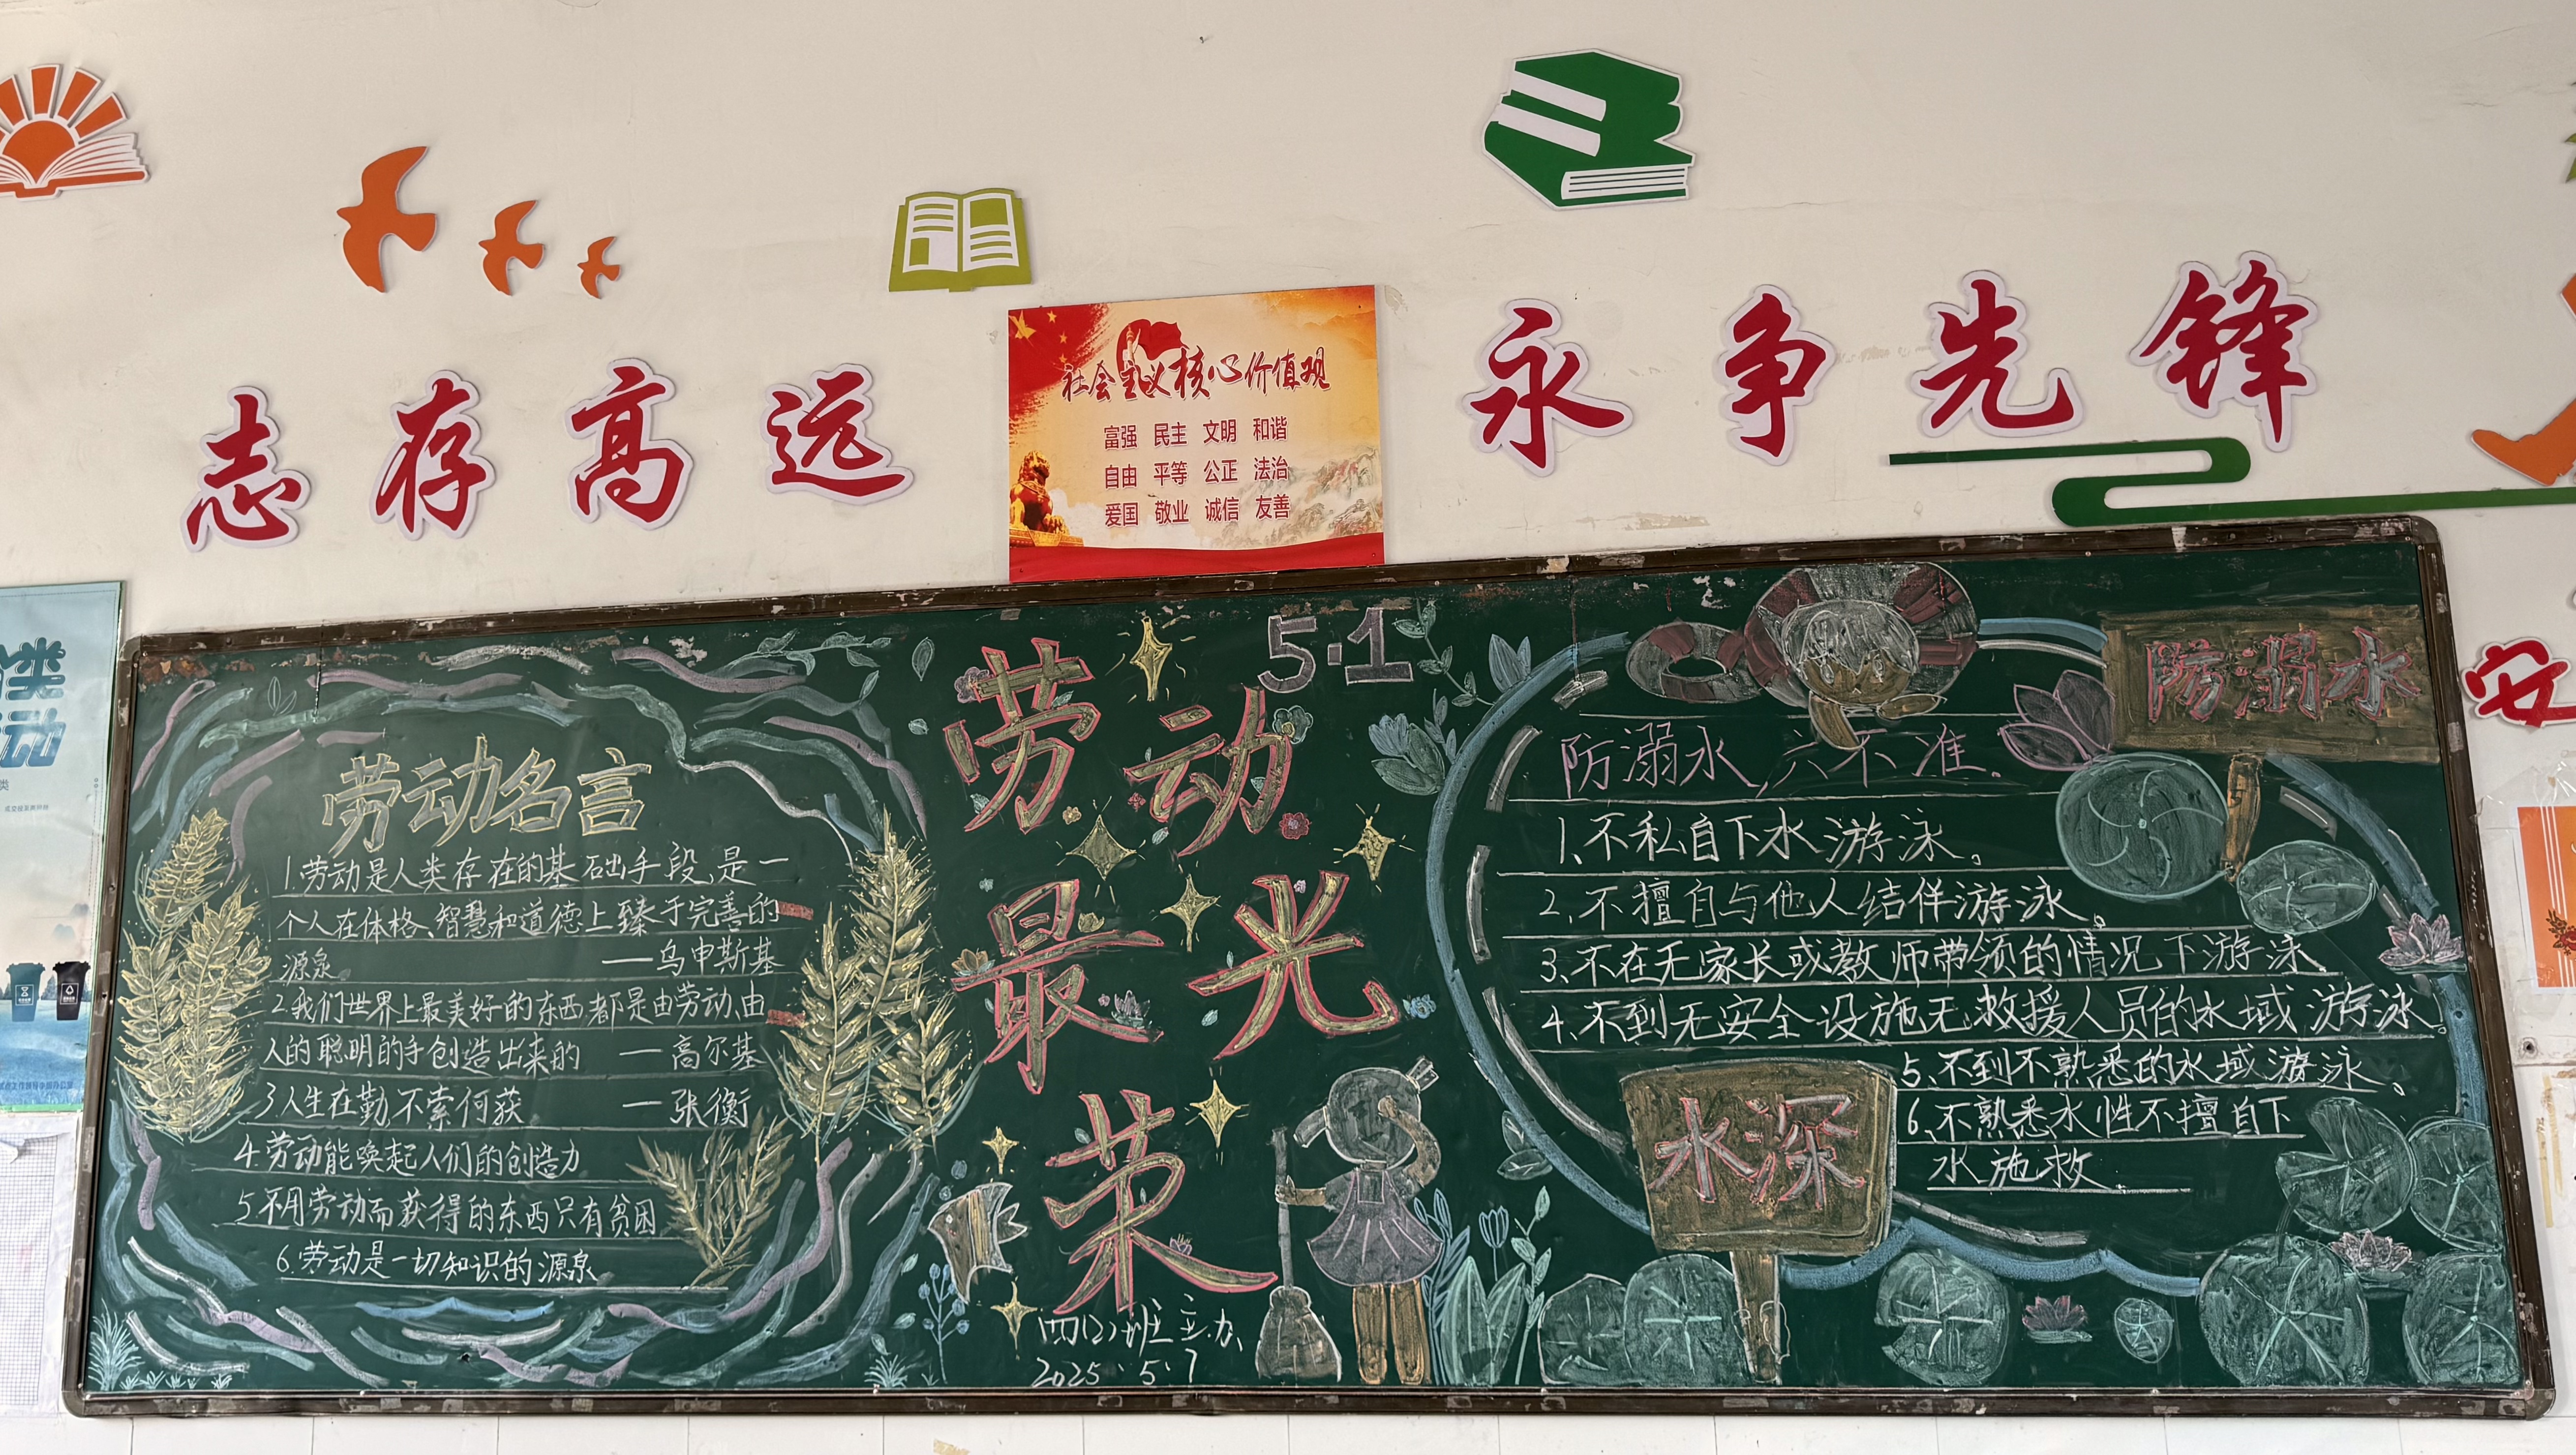 志存高远
社会主义核心价值观
富强 民主 文明 和谐
自由 平等 公正 法治
爱国 敬业 诚信 友善
永争先锋
类
动
安
劳动名言
1.劳动是人类存在的基础手段,是一
个人在体格、智慧和道德上臻于完善的
源泉 —乌申斯基
2我们世界上最美好的东西都是由劳动、由
人的聪明的手创造出来的 —高尔基
3人生在勤不索何获 —张衡
4.劳动能唤起人们的创造力
5不用劳动而获得的东西只有贫困
6.劳动是一切知识的源泉
5·1
劳动
最光
荣
四(2)班主办
2025.5.7
防溺水
防溺水,六不准.
1、不私自下水游泳。
2、不擅自与他人结伴游泳。
3、不在无家长或教师带领的情况下游泳
4、不到无安全设施无救援人员的水域游泳。
5、不到不熟悉的水域游泳。
6、不熟悉水性不擅自下
水施救
水深